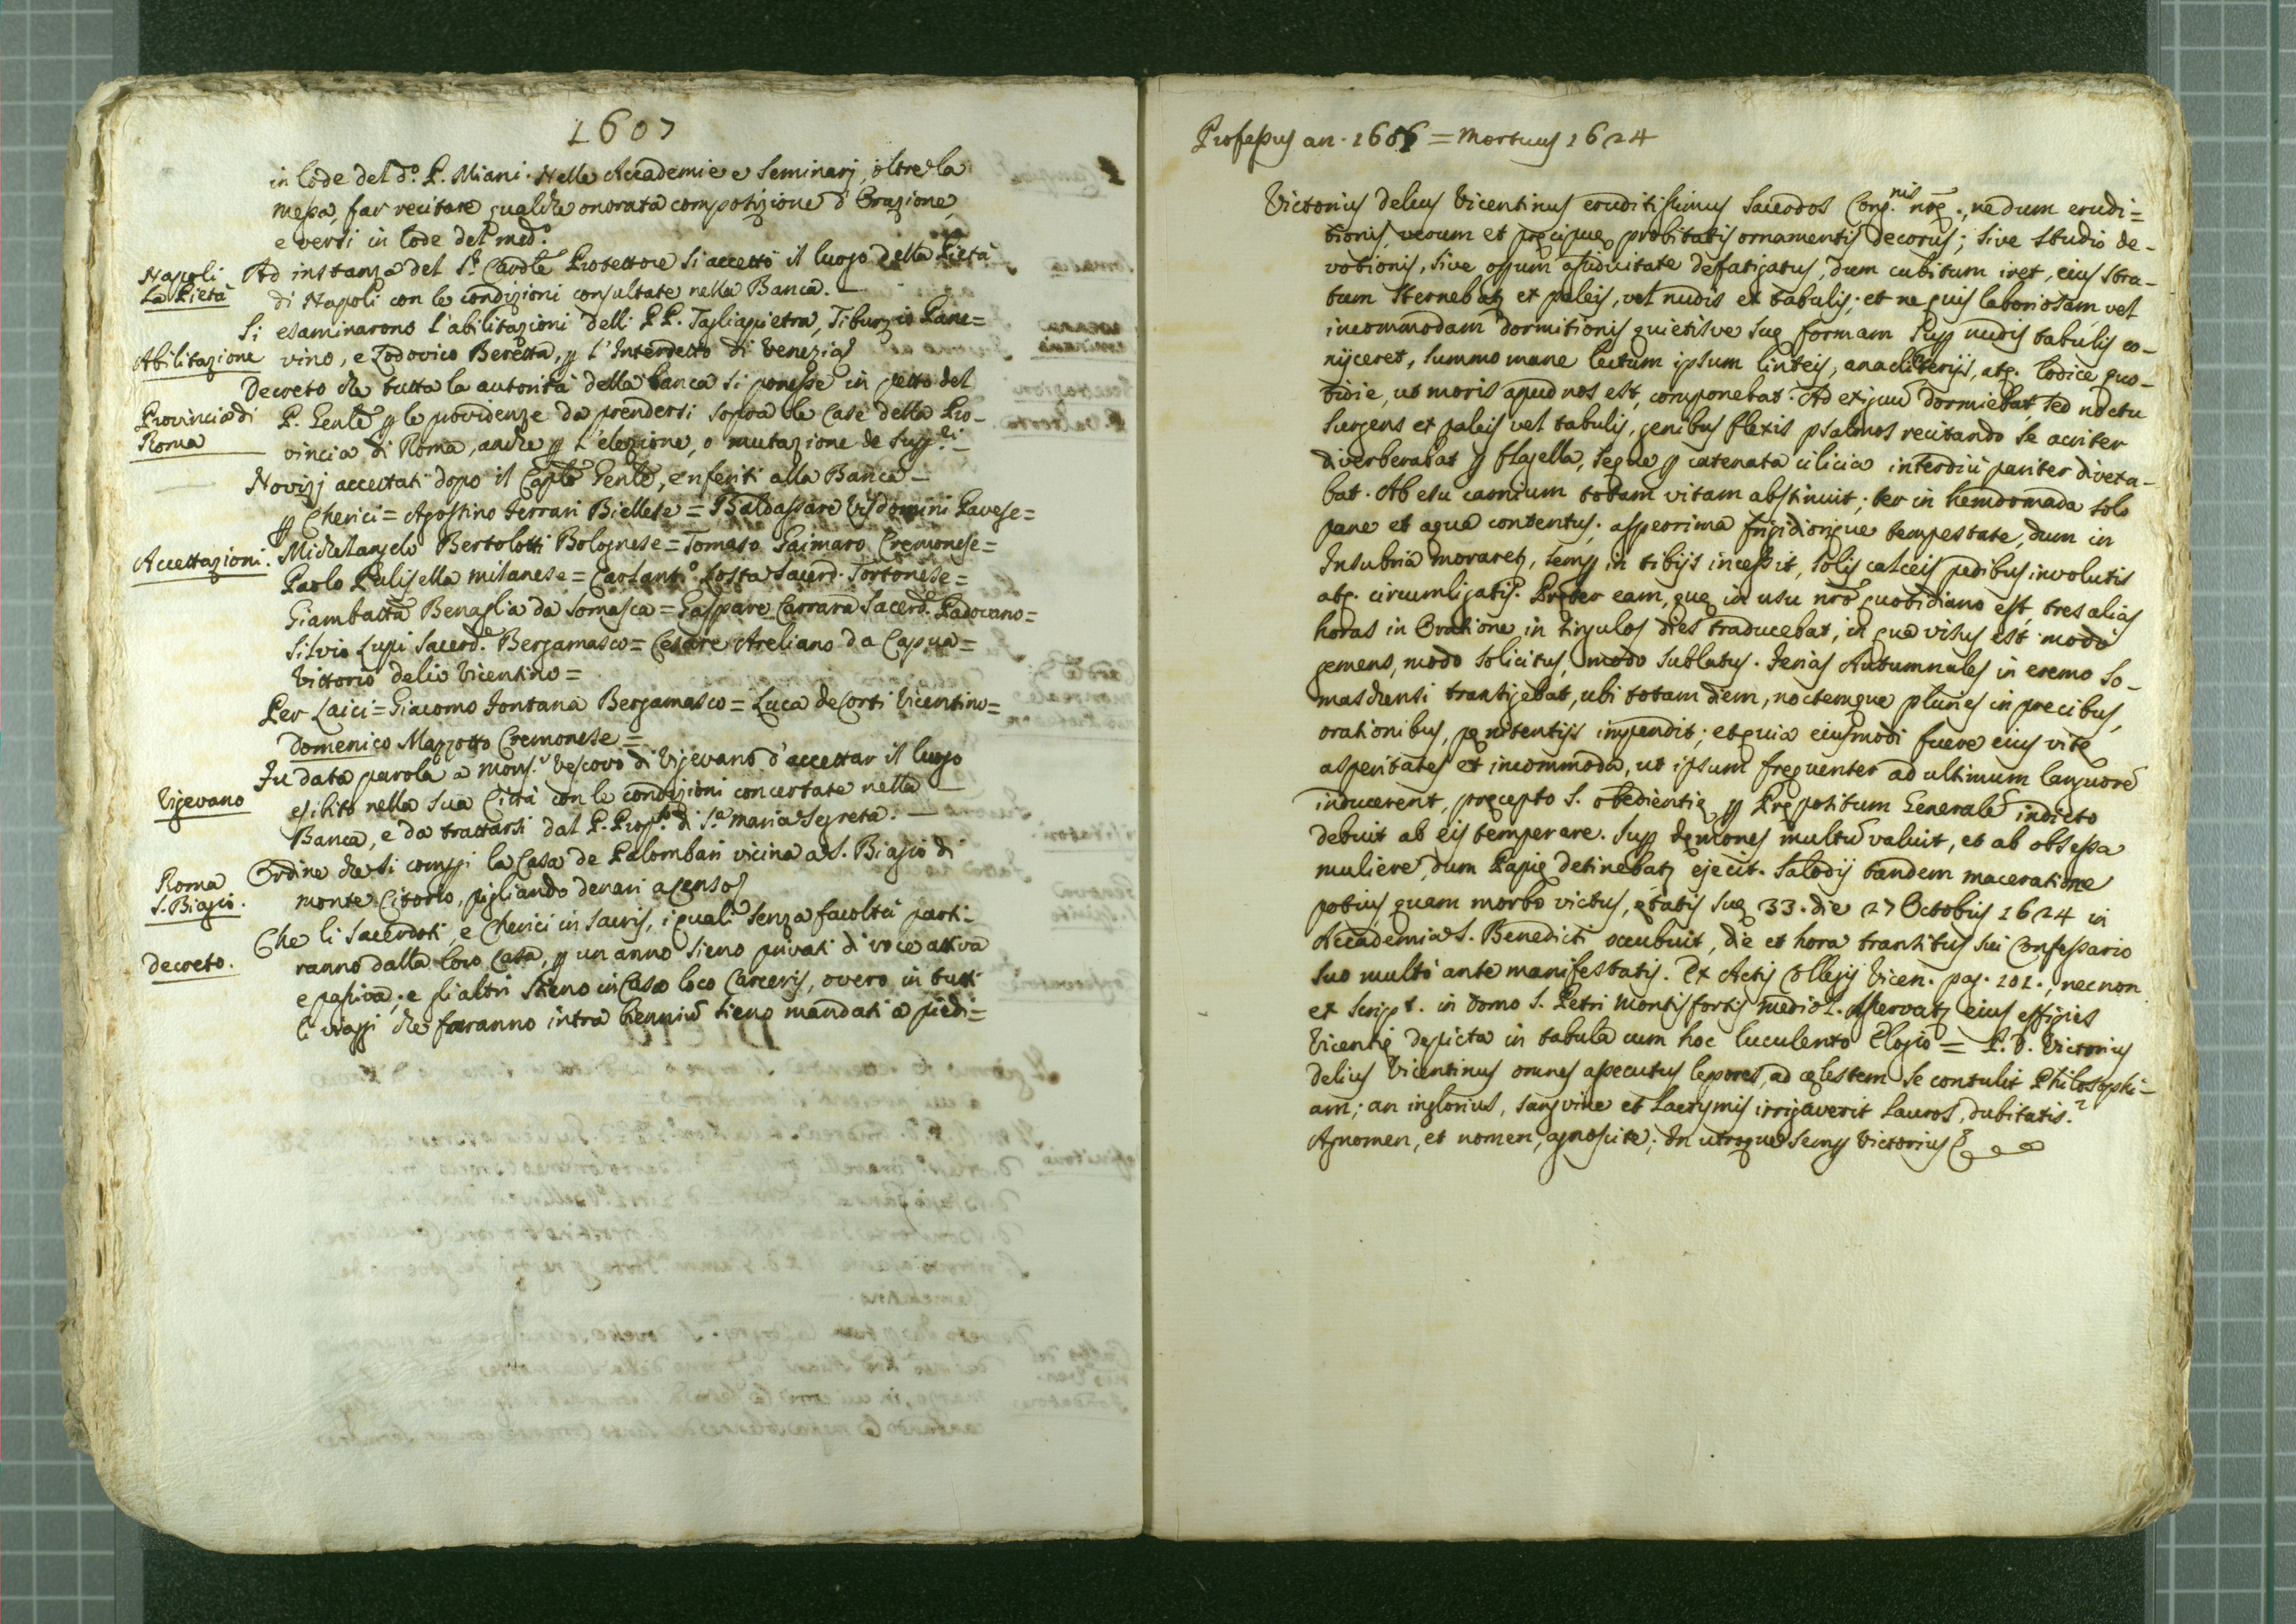 1607
in lode del d.º P. Miani. Nelle Accademie e Seminarj, oltre la
messa, far recitare qualche onorata compositione d'Orazione,
e versi in lode del med.º
Napoli
La Pietà
Ad instanza del S.r Cardle Protettore si accettò il luogo della Pietà
di Napoli con le condizioni consultate nella Banca.
Si esaminarono l'abilitazioni delli PP. Tagliapietra, Tiburzio Pane=
Abilitazione
vino, e Lodovico Beretta, p l'Interdetto di Venezia
Decreto che tutta la autorità della banca si ponesse in petto del
Provincia di
Roma
P. Genle p le providenze da prendersi sopra le Case della Pro-
vincia di Roma, anche p l'elezione, o mutazione de Sugg.ti
Novizj accettati dopo il Caplo Genle, e nferiti alla Banca
p Cherici = Agostino Ferrari Biellese = Baldassare Visdomini Pavese=
Accettazioni.
Michelangelo Bertolotti Bolognese = Tomaso Gaimaro Cremonese=
Paolo Pulisella milanese = Carlant.º Costa Sacerd. Tortonese=
Giambatta Benaglia da Somasca = Gaspare Carrara Sacerd.e Padovano=
Silvio Lupi Sacerd.e Bergamasco = Cesare Areliano da Capua=
Vittorio delio Vicentino=
Per Laici = Giacomo Fontana Bergamasco = Luca de Corti Vicentino=
Domenico Mazzotto Cremonese=
Vigevano
Fu data parola a Mons.r Vescovo di Vigevano d'accettar il luogo
esibito nella sua Città con le condizioni concertate nella
Banca, e da trattarsi dal P. Prop.to di S.a maria Segreta.
Roma
S. Biagio.
Ordine che si compri la Casa de Palombari vicina a S. Biagio di
monte Citorio, pigliando denari a censo
Decreto.
Che li Sacerdoti, e Cherici in Sacris, i quali senza facoltà parti-
ranno dalla loro Casa, p un anno sieno privati di voce attiva
e passiva; e gli altri Stieno in Casa loco Carceris, overo in tutti
li viaggi che faranno intra biennium sieno mandati a piedi=
Professus an. 1606 = Mortuus 1624
Victorius Delius Vicentinus eruditissimus Sacerdos Cong.nis nrae., nedum erudi=
tionis, verum et praecipuae probitatis ornamentis decorus; sive studio de-
votionis, sive assiduitate defatigatus, dum cubitum iret, eius stra-
tum sternebatur ex paleis, vel nudis ex tabulis; et ne quis laboriosam vel
incommodam dormitionis quietisve suae formam sup nudis tabulis co-
niiceret, summo mane lectum ipsum linteis, anacliterijs, atq. lodice quo-
tidie, ut moris apud nos est, componebat. Ad exiguum dormiebat, sed noctu
surgens ex paleis vel tabulis, genibus flexis psalmos recitando se acriter
diverberabat p flagella, seque p catenata cilicia interdiù pariter divexa-
bat. Ab esu carnium totam vitam abstinuit; ter in hemdomada solo
pane et aqua contentus; asperrima frigidiorique tempestate, dum in
Insubria moraretur, semp in tibijs incessit, solis calceis pedibus involutis
atq. circumligatis. Praeter eam, quae in usu nrō quotidiano est, tres alias
horas in Oratione in singulos dies traducebat, in qua visus est modo
gemens, modo solicitus, modo sublatus. Ferias Autumnales in eremo So-
maschensi transigebat, ubi totam diem, noctemque plures in precibus,
orationibus, paenitentijs impendit; et quia eiusmodi fuere eius vitae
asperitates et incommoda, ut ipsum frequenter ad ultimum languorē
inducerent, praecepto S. obedientiae p Praepositum Generalē indicto
debuit ab eis temperare. Sup daemones multū valuit, et ab obsessa
muliere, dum Papiae detinebatur ejecit. Salodij tandem maceratione
potius, quam morbo victus, aetatis suae 33. die 27 Octobris 1624 in
Accademia S. Benedicti occubuit, die et hora transitus sui Confessario
suo multò ante manifestatis. Ex Actis Collegij Vicen. pag. 101., necnon
ex Script. in domo S. Petri Montisfortis Mediol. Asservatur eius effigies
Vicentiae depicta in tabula cum hoc luculento Elogio = P. D. Victorius
Delius Vicentinus omnes assecutus lepores, ad caelestem se contulit Philosophi-
am; an inglorius, sanguine et lacrymis irrigaverit Lauros, dubitatis?
Agnomen, et nomen, agnoscite; In utroque semp Victorius